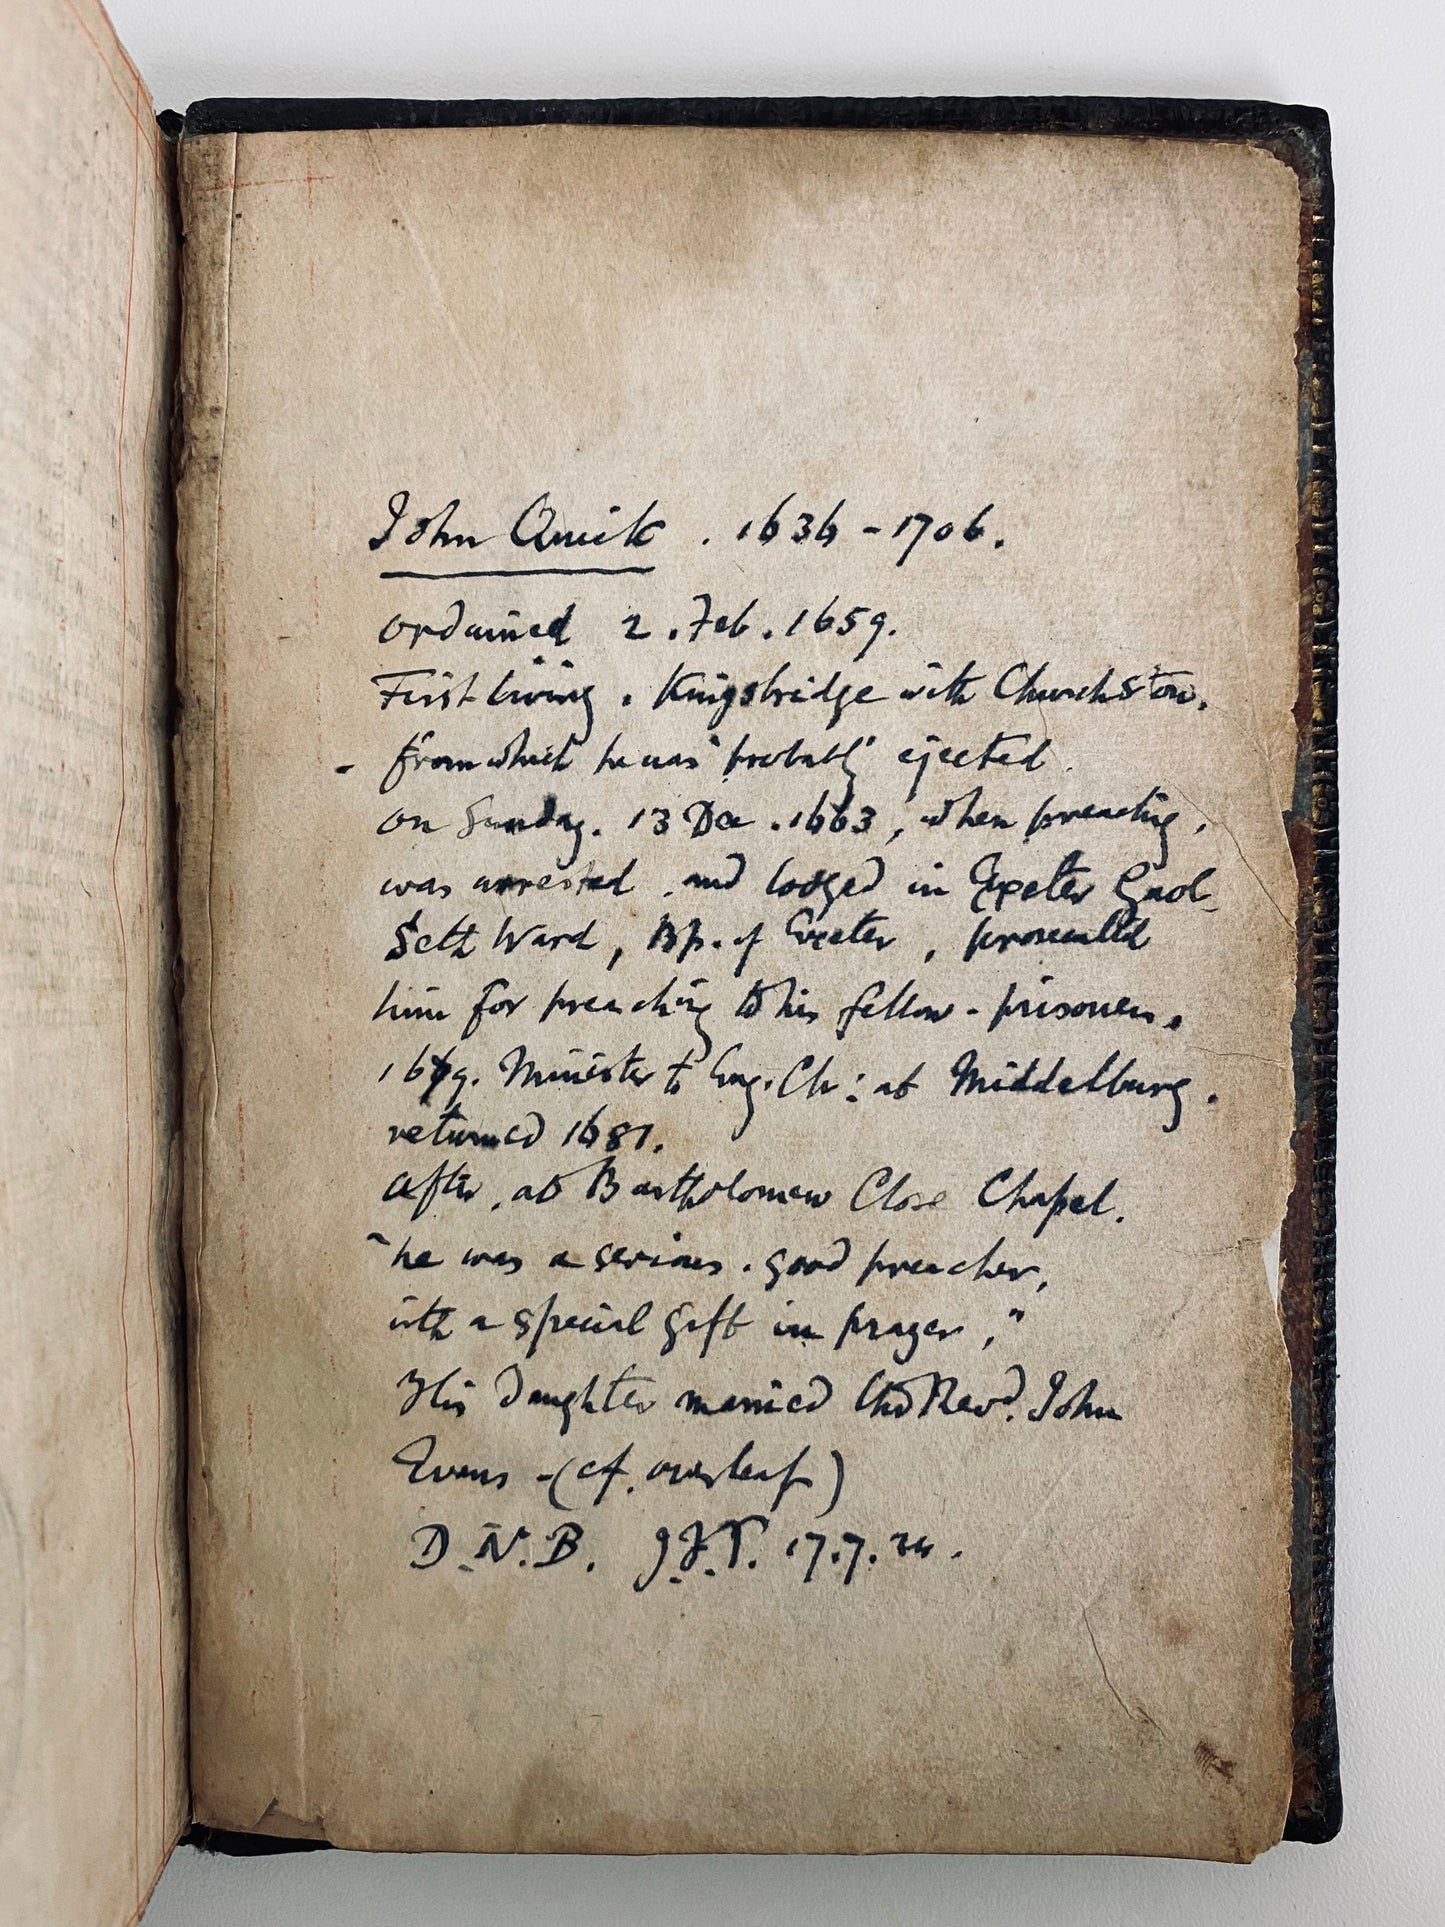 John Quick . 1636 - 1706.
ordained 2. Feb. 1659.
First living. Kingsbridge with Churchstow.
- from which he was "probably" ejected.
on Sunday. 13 Dec. 1663, when preaching,
was arrested. and lodged in Exeter Gaol.
Seth Ward, Bp. of Exeter, prosecuted
him for preaching to his fellow-prisoners.
1679. Minister to Eng. Ch: at Middelburg.
returned 1681.
after, at Bartholomew Close Chapel.
"he was a serious. good preacher,
with a special gift in prayer,"
His daughter married the Revd. John
Evans - (cf. overleaf)
D.N.B. J.F.T. 17.7.24.